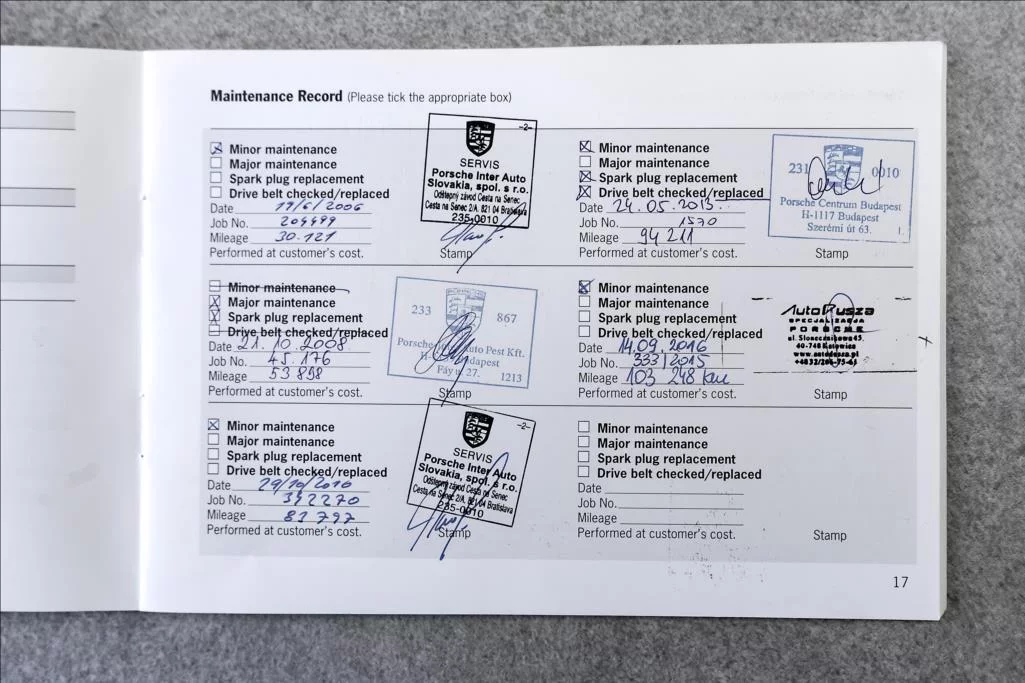 Maintenance Record (Please tick the appropriate box)
Minor maintenance
Major maintenance
Spark plug replacement
Drive belt checked/replaced
Date 19/6/2006
Job No. 204499
Mileage 30.121
Performed at customer's cost.
Stamp
-2-
SERVIS
Porsche Inter Auto
Slovakia, spol. s r.o.
Odštepný závod Cesta na Senec
Cesta na Senec 2/A, 821 04 Bratislava
235-0010
Minor maintenance
Major maintenance
Spark plug replacement
Drive belt checked/replaced
Date 21.10.2008
Job No. 45.176
Mileage 53 858
Performed at customer's cost.
Stamp
233 867
Porsche Auto Pest Kft.
Fáy u. 27.
1213
Minor maintenance
Major maintenance
Spark plug replacement
Drive belt checked/replaced
Date 29/10/2010
Job No. 392270
Mileage 83 797
Performed at customer's cost.
Stamp
-2-
SERVIS
Porsche Inter Auto
Slovakia, spol. s r.o.
Odštepný závod Cesta na Senec
Cesta na Senec 2/A, 821 04 Bratislava
235-0010
Minor maintenance
Major maintenance
Spark plug replacement
Drive belt checked/replaced
Date 24.05.2013.
Job No. 1570
Mileage 94 211
Performed at customer's cost.
Stamp
231 0010
Porsche Centrum Budapest
H-1117 Budapest
Szerémi út 63.
1.
Minor maintenance
Major maintenance
Spark plug replacement
Drive belt checked/replaced
Date 14.09.2016
Job No. 333/2015
Mileage 103 248 km
Performed at customer's cost.
Stamp
AutoRusza
SPECJALIZACJA
PORSCHE
ul. Słonecznikowa 45,
40-748 Katowice
Minor maintenance
Major maintenance
Spark plug replacement
Drive belt checked/replaced
Date
Job No.
Mileage
Performed at customer's cost.
Stamp
17